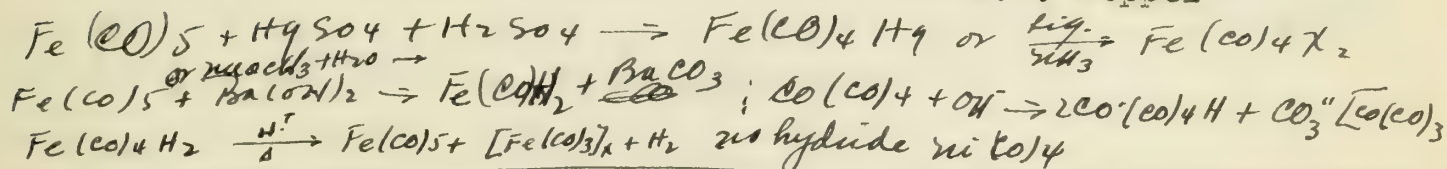 Fe(CO)5 + HgSO4 + H2SO4 → Fe(CO)4Hg or liq. NH3 → Fe(CO)4X2
or NaOCH3 + H2O →
Fe(CO)5 + Ba(OH)2 → Fe(CO)H2 + BaCO3 ; Co(CO)4 + OH⁻ → 2Co(CO)4H + CO3" [Co(CO)3
Fe(CO)4H2 Δ → Fe(CO)5 + [Fe(CO)3]x + H2 no hydride Ni(CO)4